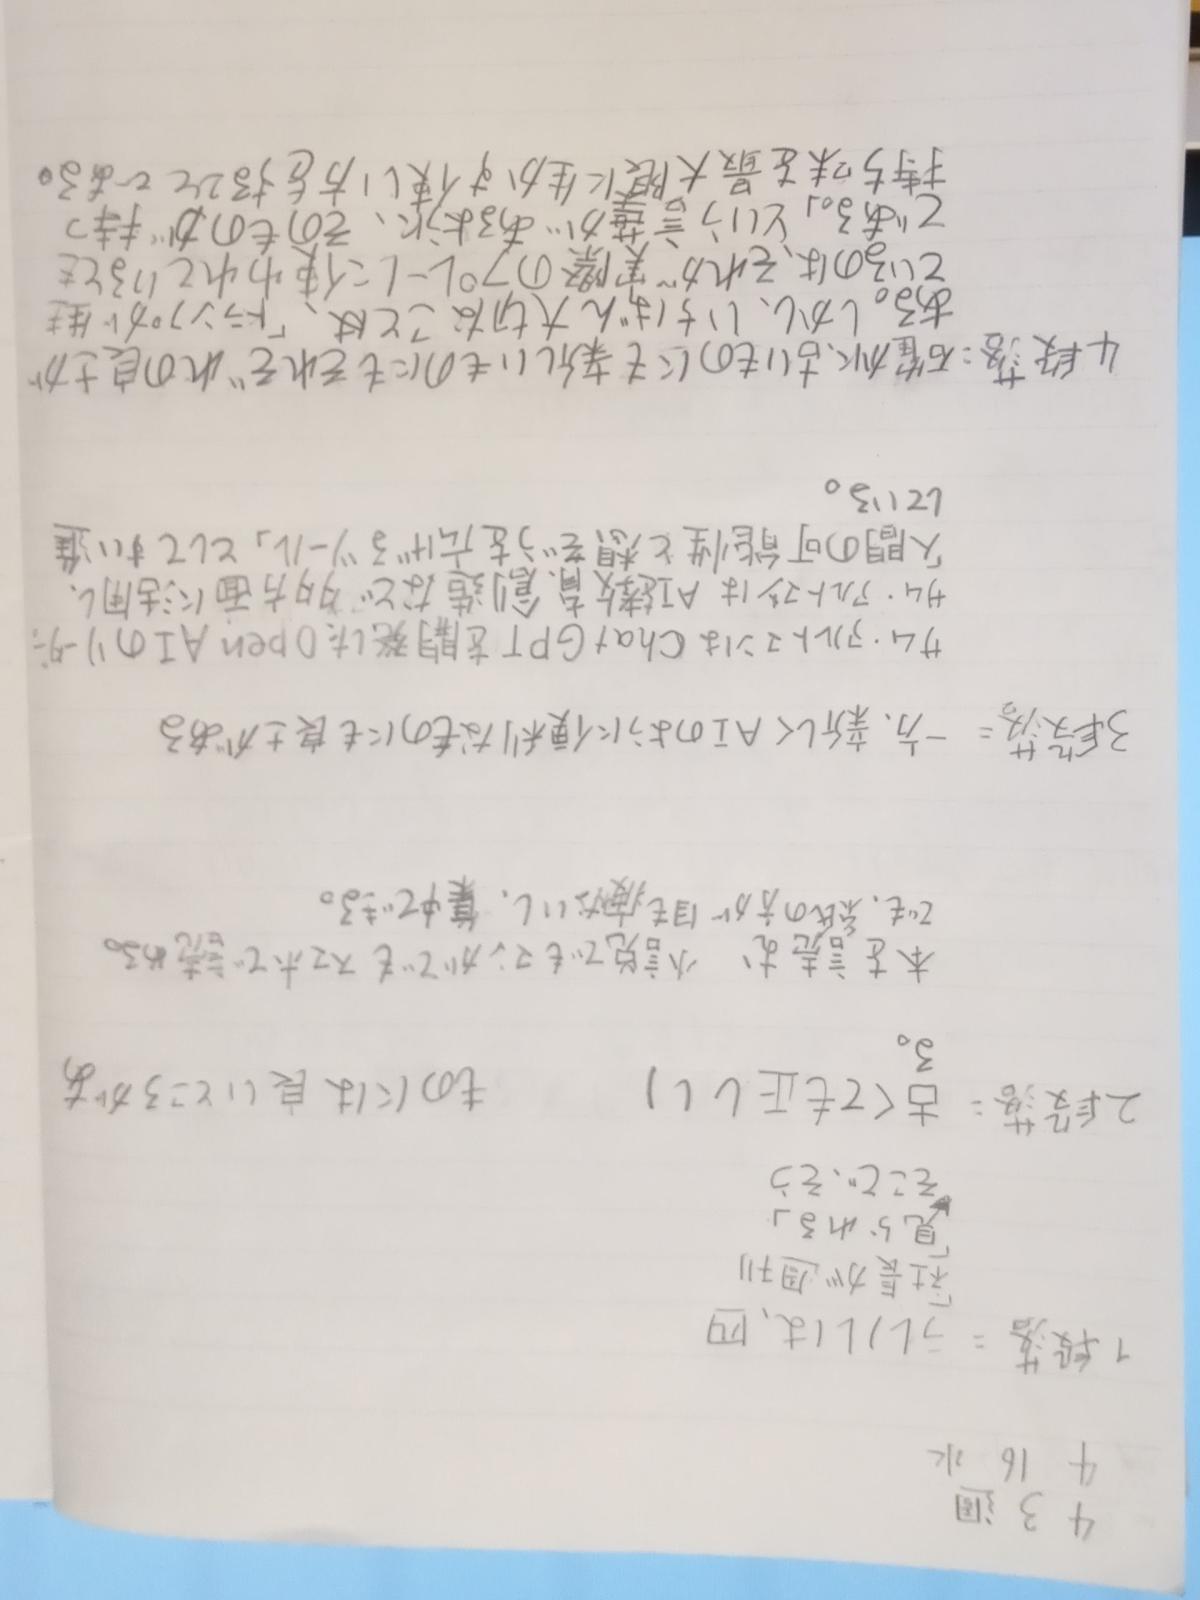 4 3 週
4 16 水
1段落 = テレ1レは、四
「社長が週刊
「見られる」
そこで、そう
2段落 = 古くても正しい ものには良いところがあ
る。
本を読む 小説でもマンガでもスマホで読める。
でも、紙の方が目も疲ないし、集中できる。
3段落 = 一方、新しくAIのように便利なものにも良さがある
サム・アルトマンはChatGPTを開発したOpen AIのリーダー
サム・アルトマンは AIを教育、創造など多方面に活用し、
「人間の可能性と想ぞうを広げるツール」としてすい進
している。
4段落 = 確かに、古いものにも新しいものにもそれぞれの良さが
ある。しかし、いちばん大切なことは、「トランプが生き
ているのは、それが実際のプレーに使われているとき
である。」という言葉があるように、そのものが持つ
持ち味を最大限に生かす使い方をすることである。